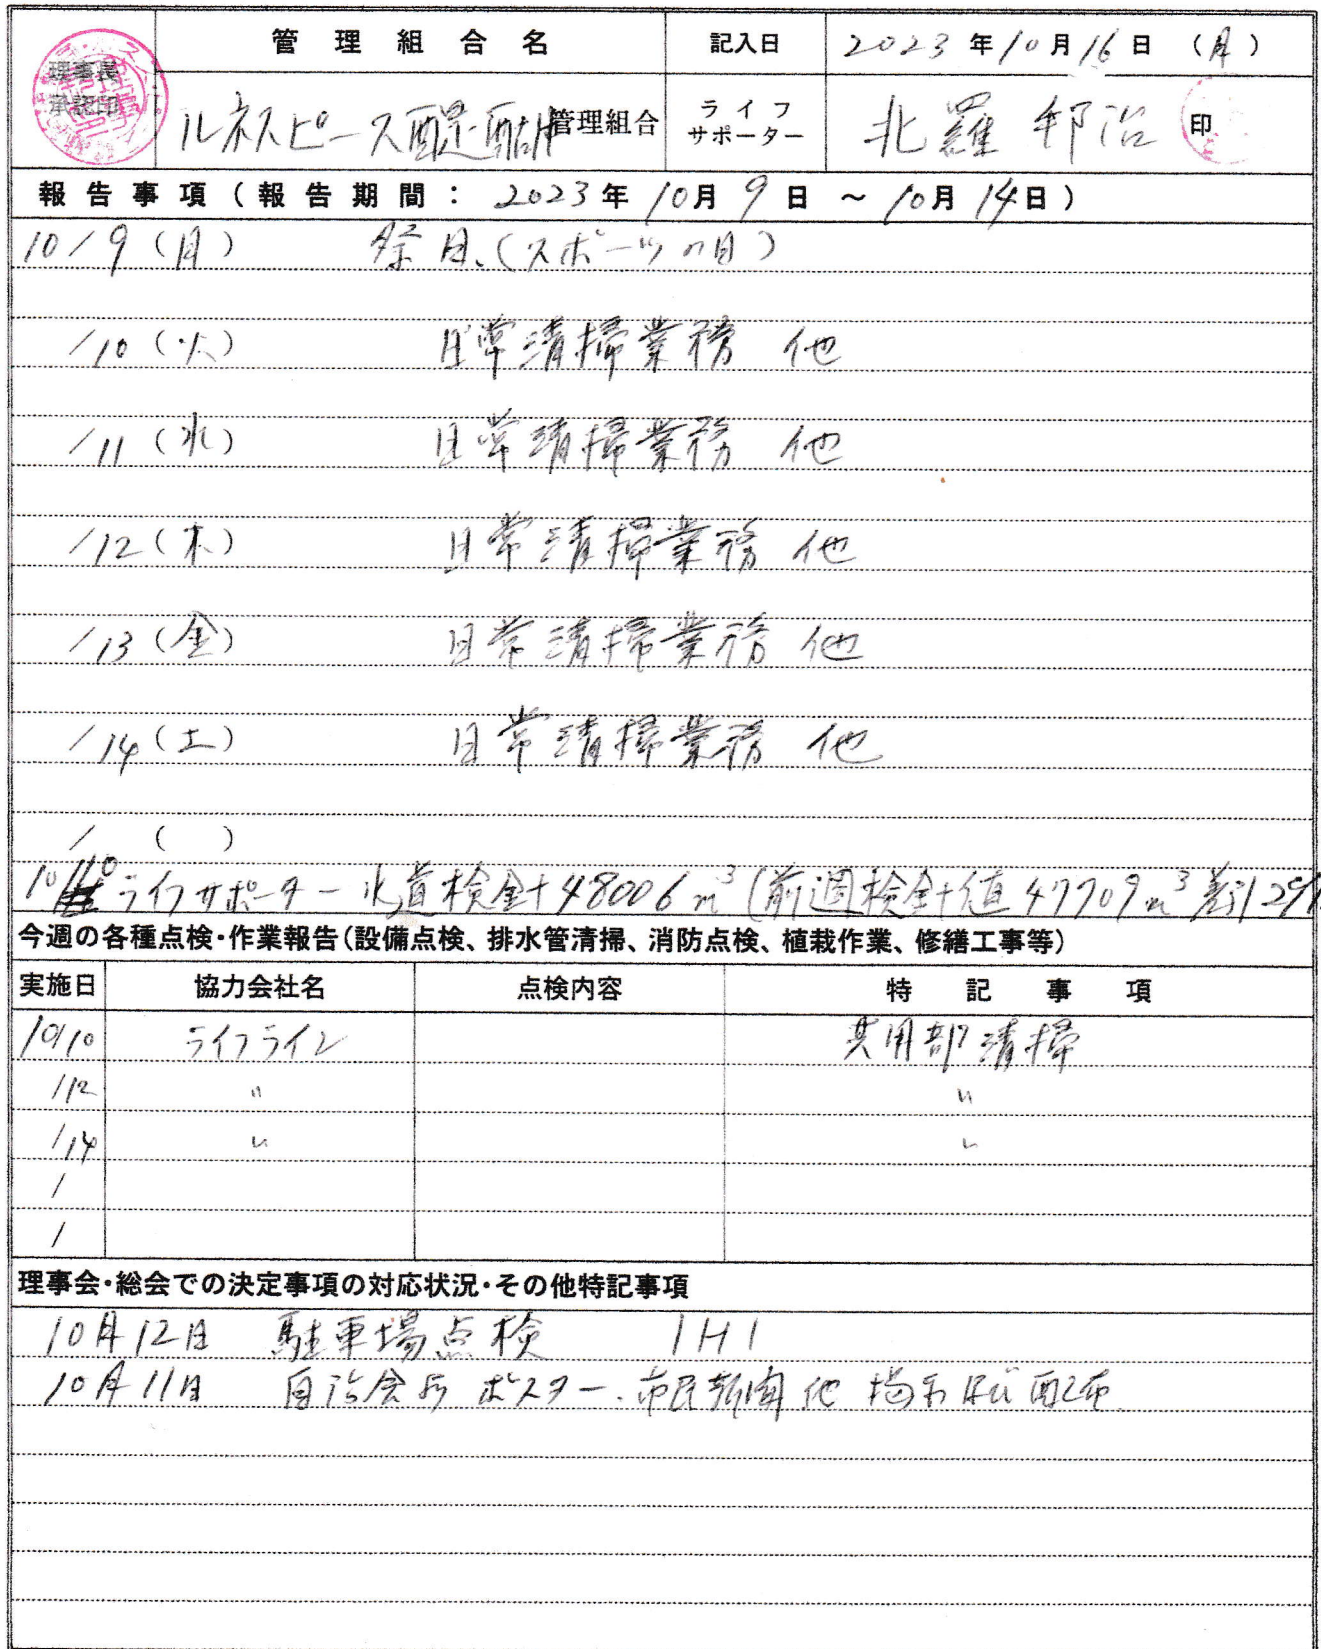 理事長
承認印
管理組合名
記入日
2023年10月16日（月）
ルネスピース醍醐管理組合
ライフ
サポーター
北羅 邦治
印
報告事項（報告期間：2023年10月9日～10月14日）
10/9（月） 祭日、（スポーツの日）
/10（火） 日常清掃業務 他
/11（水） 日常清掃業務 他
/12（木） 日常清掃業務 他
/13（金） 日常清掃業務 他
/14（土） 日常清掃業務 他
/ （ ）
10/10 ライフサポーター 水道検針48006m³（前週検針値47709m³ 差引29
今週の各種点検・作業報告（設備点検、排水管清掃、消防点検、植栽作業、修繕工事等）
実施日 協力会社名 点検内容 特記事項
10/10 ライフライン 共用部清掃
/12 〃 〃
/14 〃 〃
/
/
理事会・総会での決定事項の対応状況・その他特記事項
10月12日 駐車場点検 IHI
10月11日 自治会 ポスター、市民新聞他 掲示及び配布